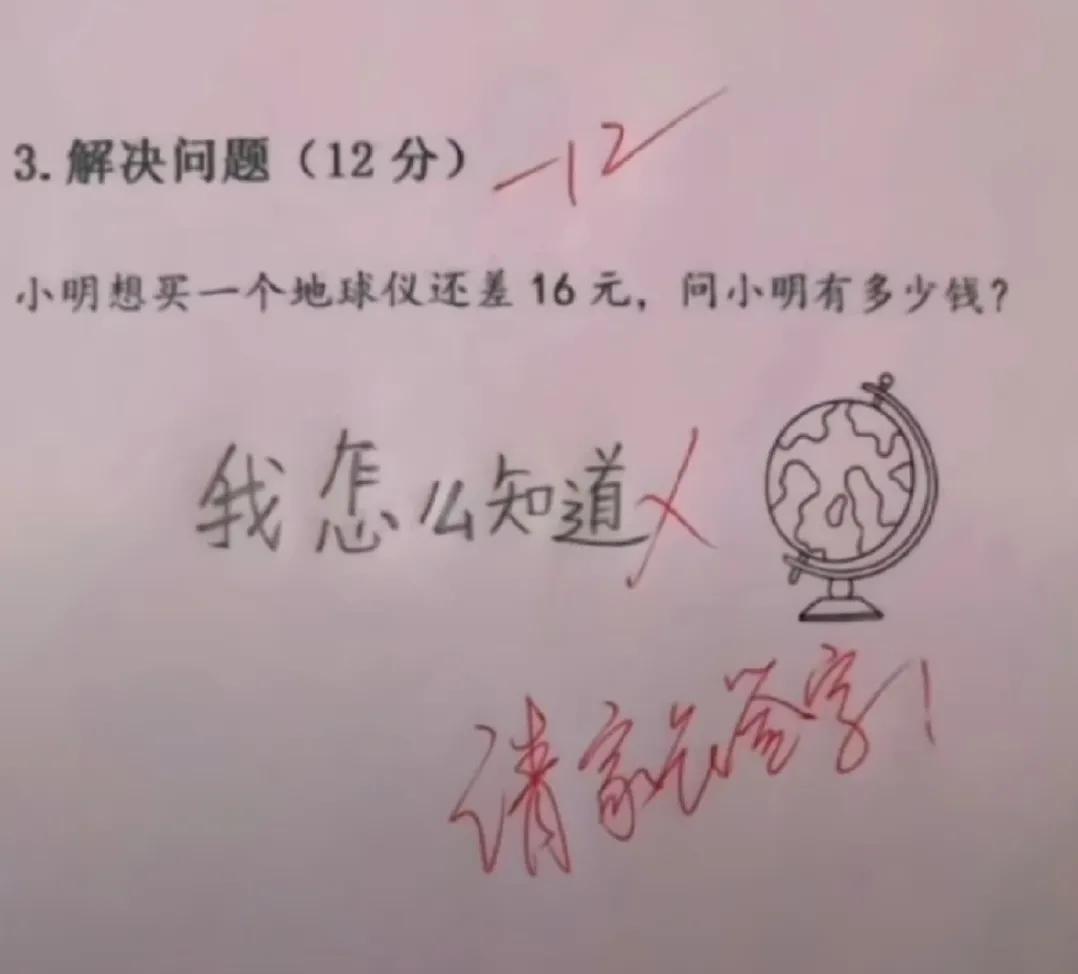 3.解决问题（12 分）
-12
小明想买一个地球仪还差 16 元，问小明有多少钱？
我怎么知道
请家长签字！